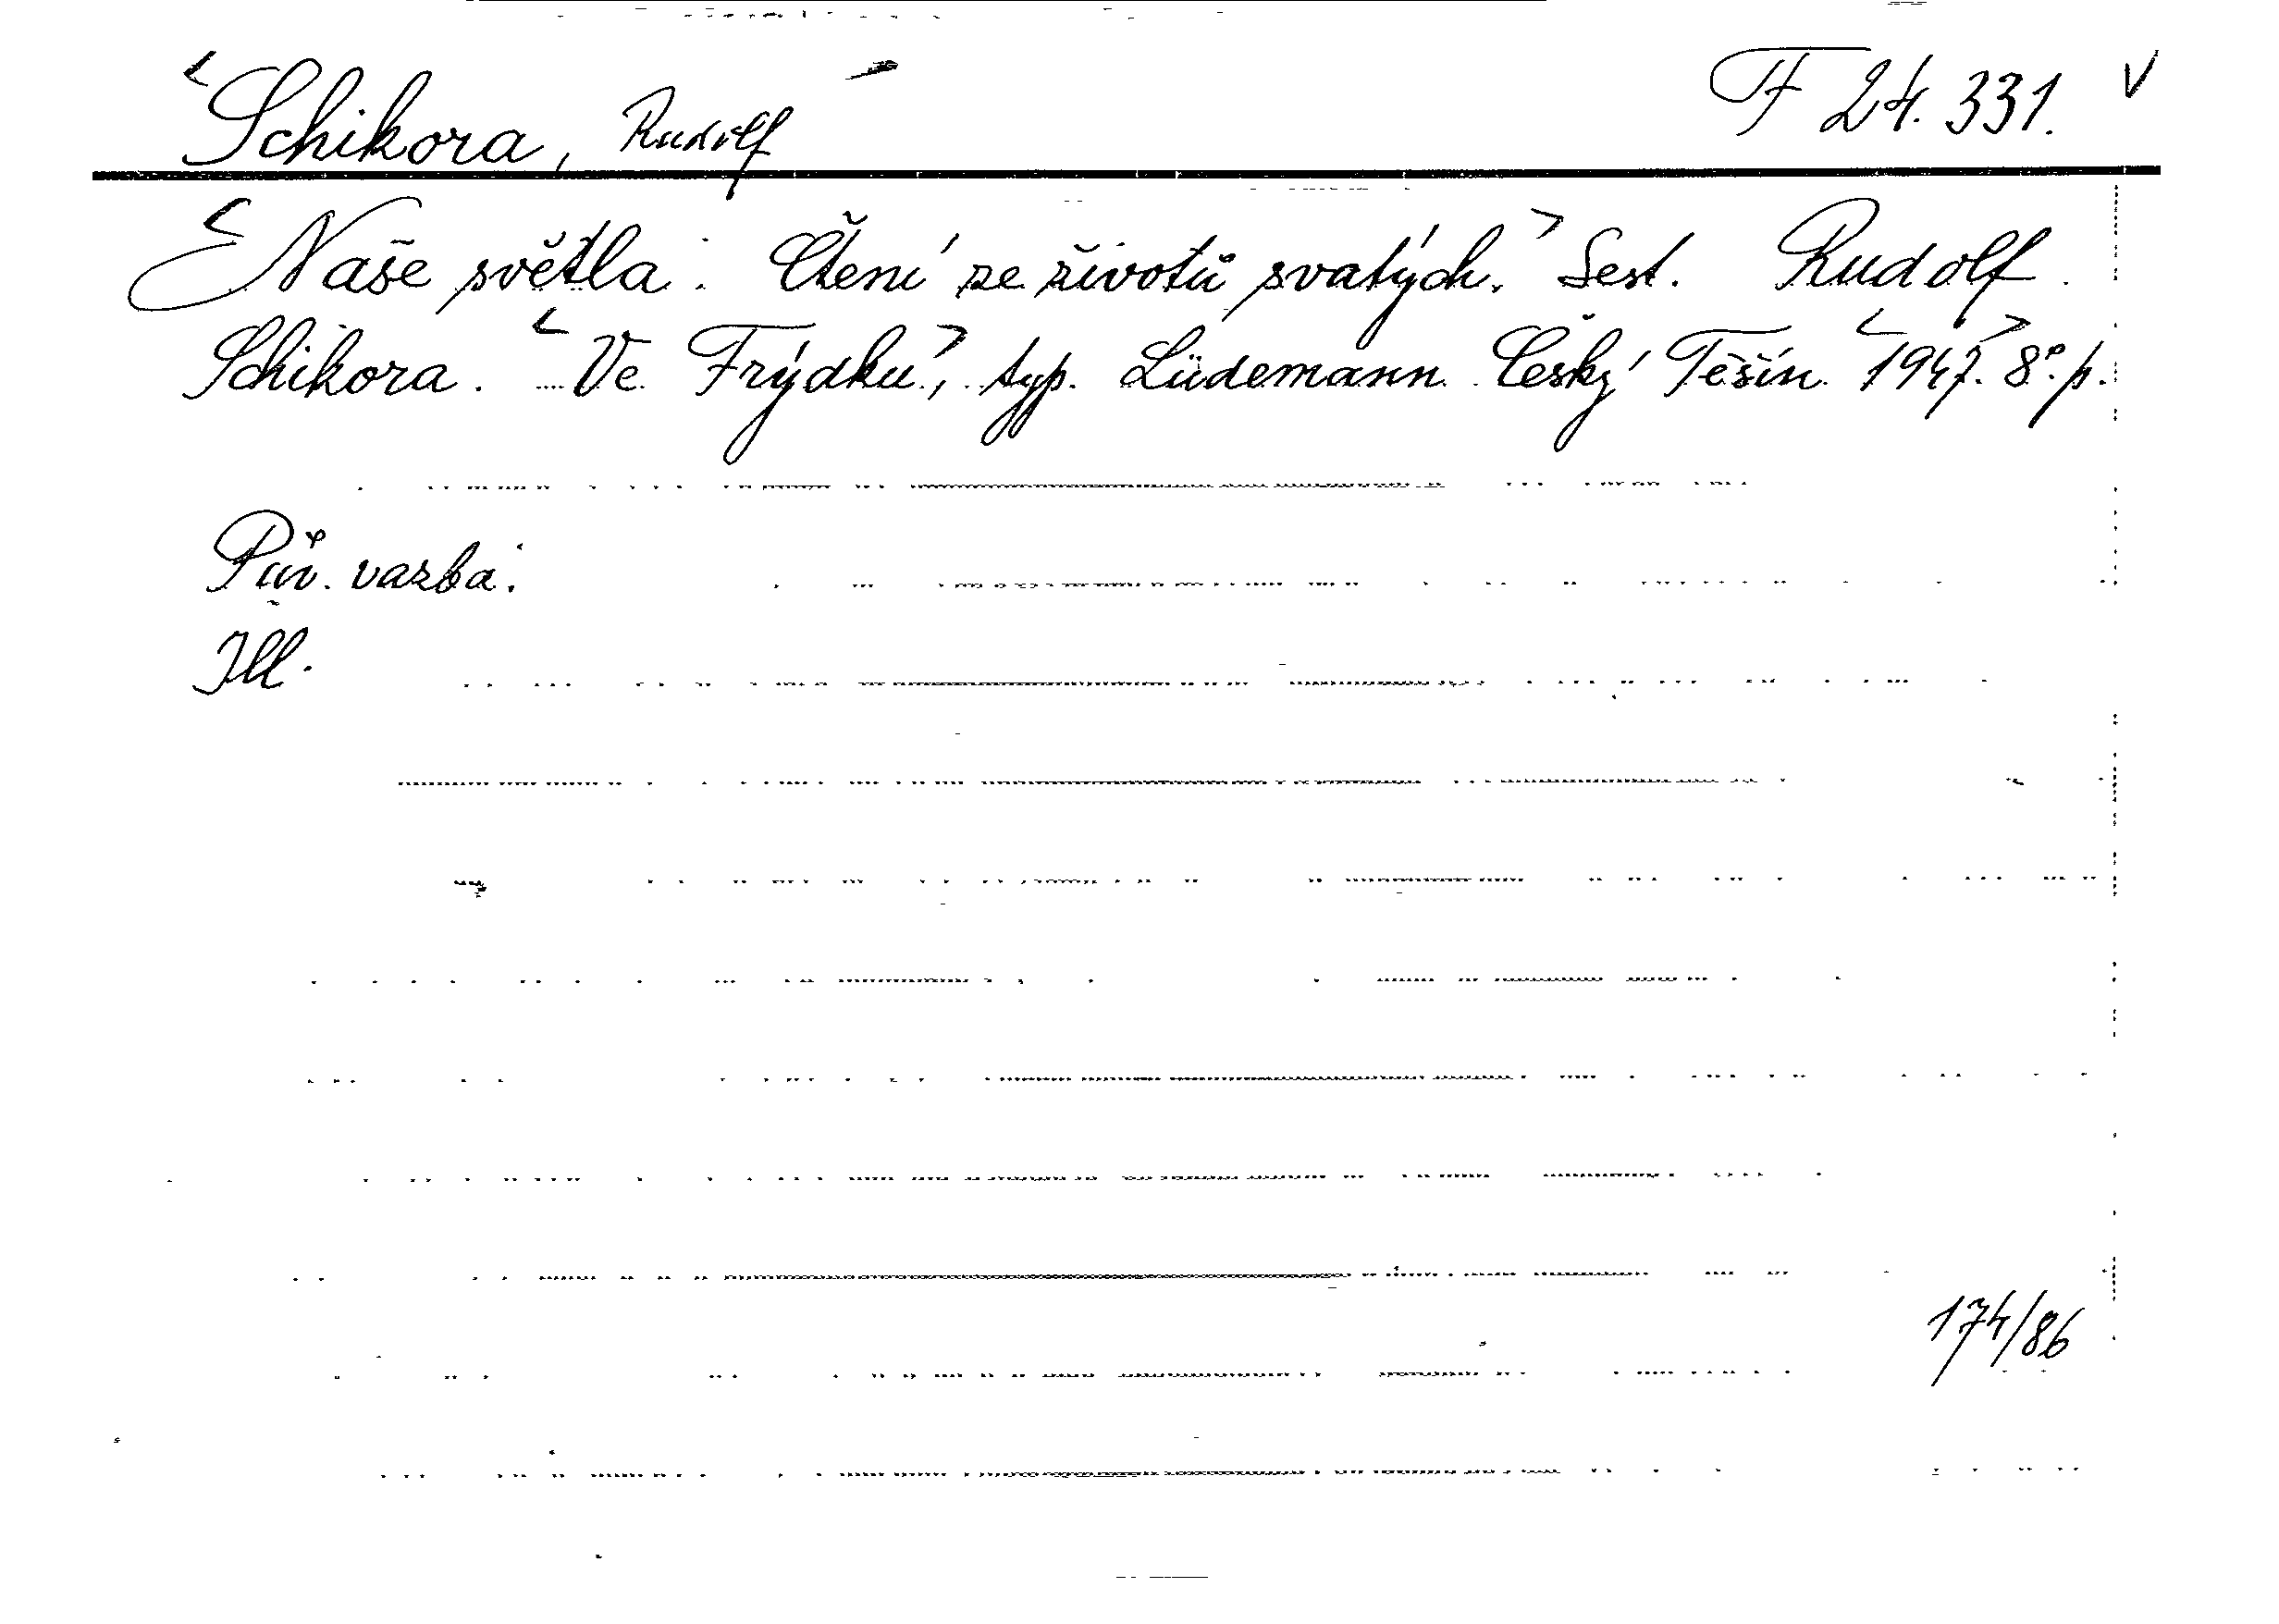 Schikora, Rudolf F 24.331. V
Naše světla: Čtení ze životů svatých. Sest. Rudolf
Schikora. Ve Frýdku, typ. Lüdemann Český Těšín 1947. 8°. p.
Pův. vazba.
Ill.
174/86